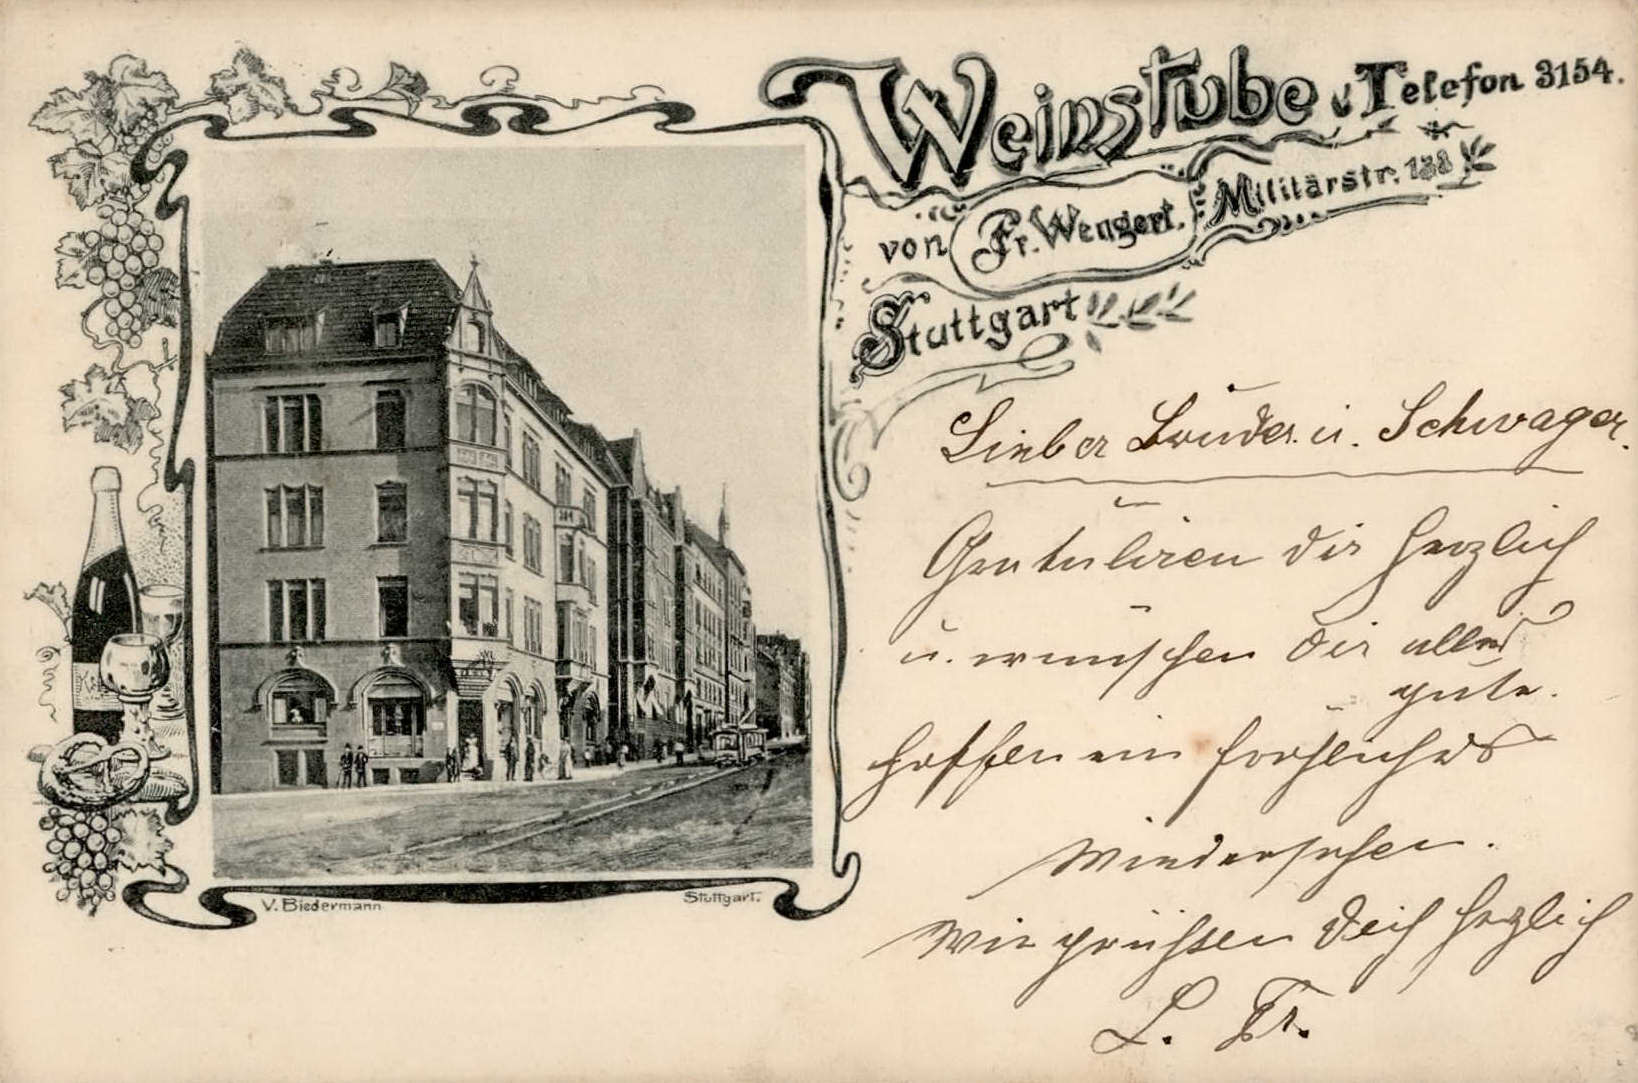 Weinstube Telefon 3154.
von Fr. Wengert. Militärstr. 138
Stuttgart
Lieber Bruder u. Schwager.
Gratuliren dir herzlich
u. wünschen dir alles
gute.
hoffen ein fröhliches
Wiedersehen.
Wir grüßen dich herzlich
L. Fr.
V. Biedermann Stuttgart.